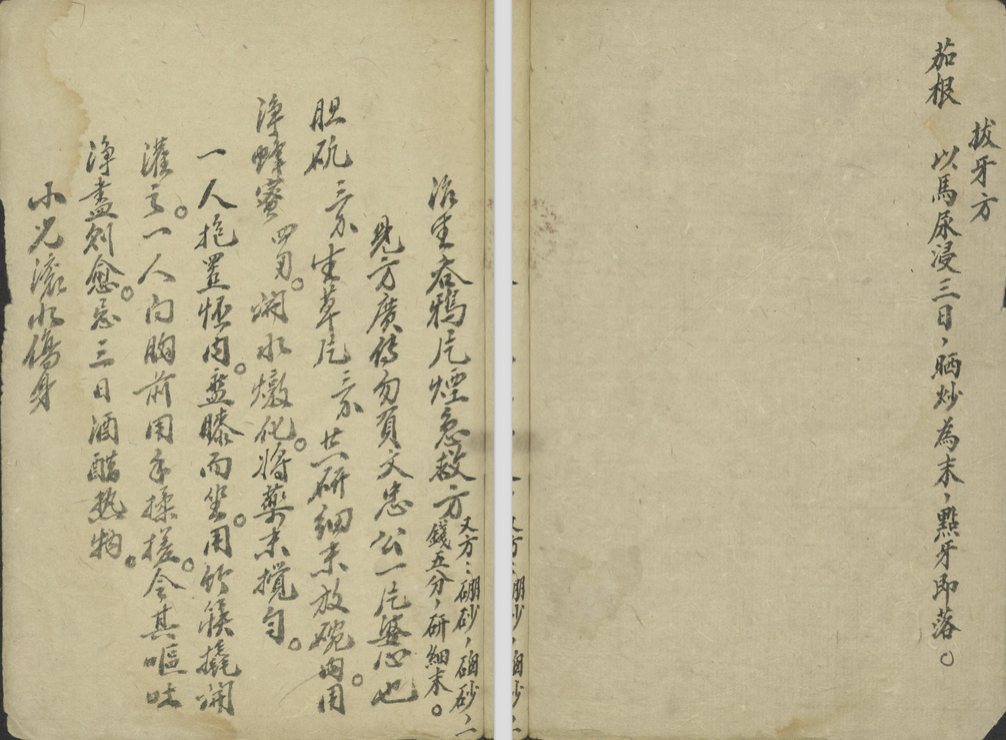 拔牙方
茄根 以馬尿浸三日，晒炒為末，點牙即落。
又方：硼砂，硇砂，二
錢五分，研細末。
治生吞鴉片煙急救方
此方廣傳勿負文忠公一片婆心也
胆矾三分 生草片三分 共研細末放碗內。用
淨蜂蜜四匁。開水燉化。將藥末攪勻。
一人抱置怀內。盤膝而坐。用竹筷撬開
灌之。一人向胸前用手揉搓。令其嘔吐
淨盡則愈。忌三日酒醋熱物。
小児滾水傷身